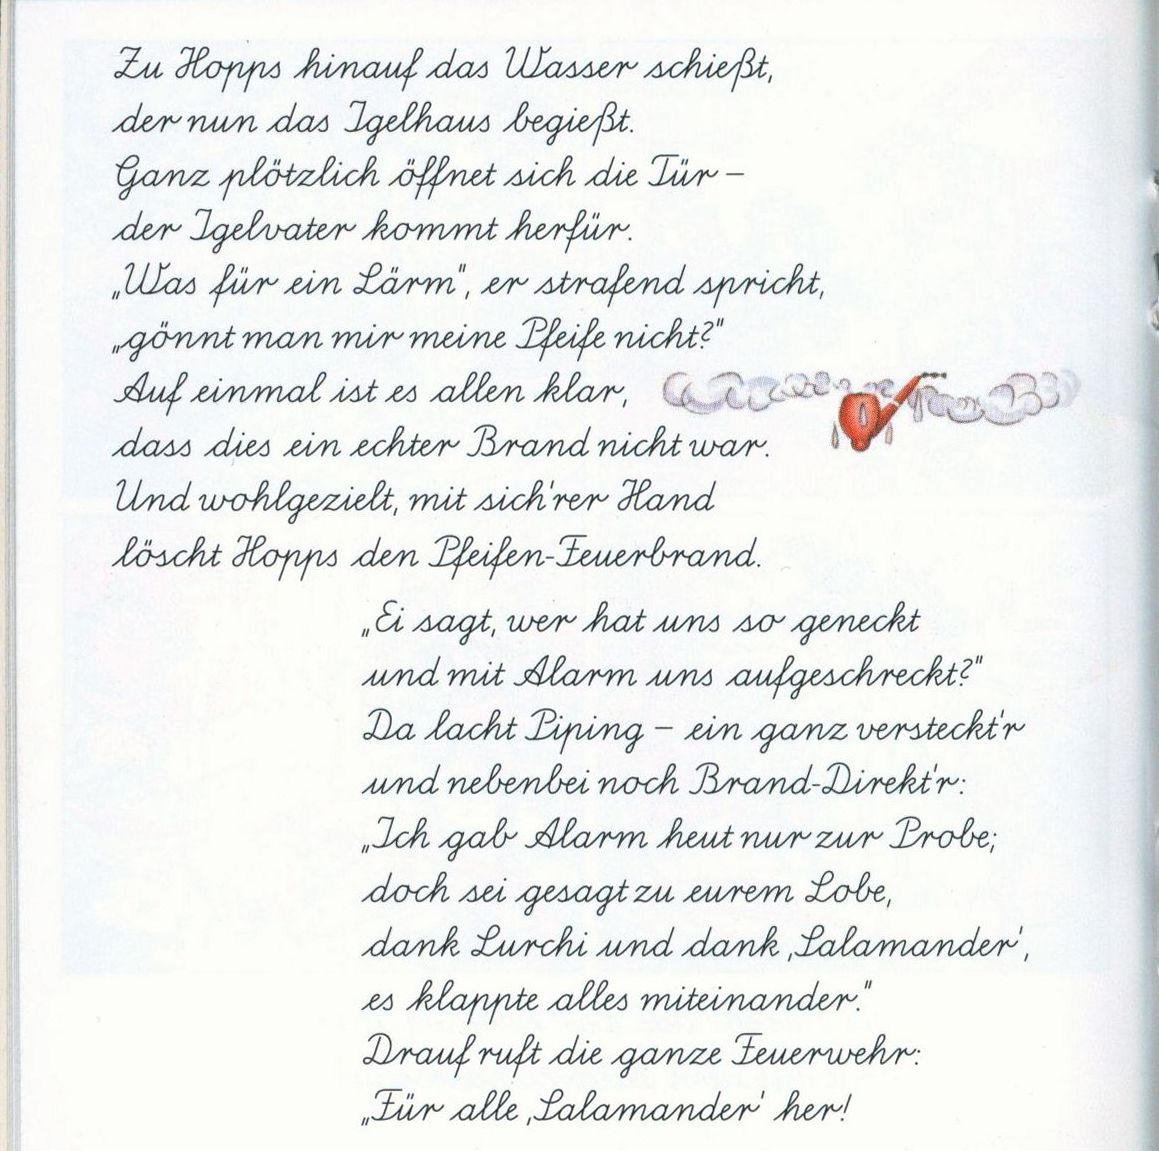 Zu Hopps hinauf das Wasser schießt,
der nun das Igelhaus begießt.
Ganz plötzlich öffnet sich die Tür –
der Igelvater kommt herfür.
„Was für ein Lärm", er strafend spricht,
„gönnt man mir meine Pfeife nicht?"
Auf einmal ist es allen klar,
dass dies ein echter Brand nicht war.
Und wohlgezielt, mit sich'rer Hand
löscht Hopps den Pfeifen-Feuerbrand.
„Ei sagt, wer hat uns so geneckt
und mit Alarm uns aufgeschreckt?"
Da lacht Piping – ein ganz versteckt'r
und nebenbei noch Brand-Direkt'r:
„Ich gab Alarm heut nur zur Probe;
doch sei gesagt zu eurem Lobe,
dank Lurchi und dank ‚Salamander',
es klappte alles miteinander."
Drauf ruft die ganze Feuerwehr:
„Für alle ‚Salamander' her!